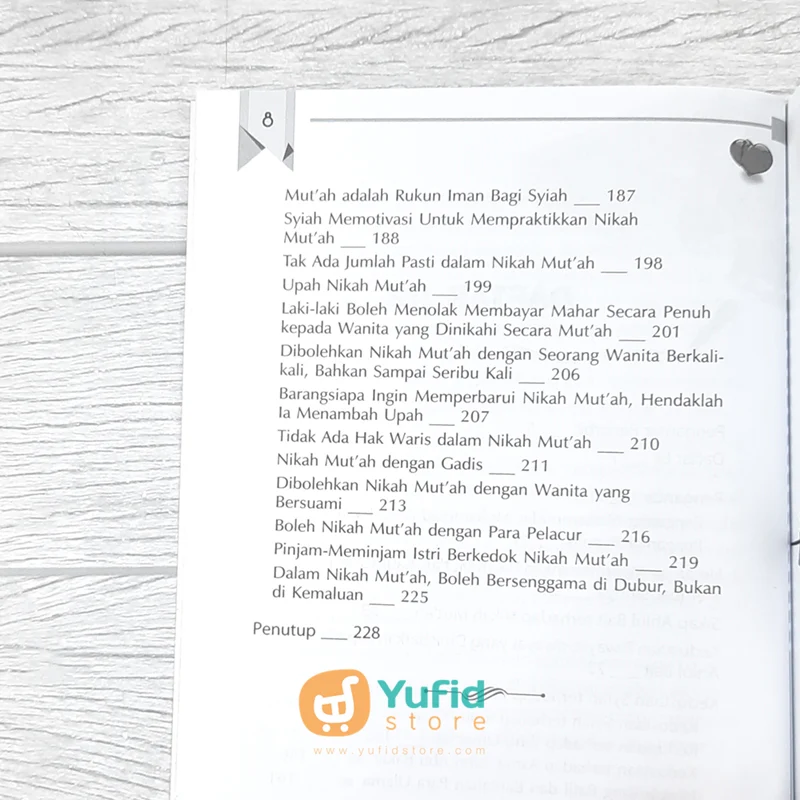 8
Mut'ah adalah Rukun Iman Bagi Syiah ___ 187
Syiah Memotivasi Untuk Mempraktikkan Nikah
Mut'ah ___ 188
Tak Ada Jumlah Pasti dalam Nikah Mut'ah ___ 198
Upah Nikah Mut'ah ___ 199
Laki-laki Boleh Menolak Membayar Mahar Secara Penuh
kepada Wanita yang Dinikahi Secara Mut'ah ___ 201
Dibolehkan Nikah Mut'ah dengan Seorang Wanita Berkali-
kali, Bahkan Sampai Seribu Kali ___ 206
Barangsiapa Ingin Memperbarui Nikah Mut'ah, Hendaklah
Ia Menambah Upah ___ 207
Tidak Ada Hak Waris dalam Nikah Mut'ah ___ 210
Nikah Mut'ah dengan Gadis ___ 211
Dibolehkan Nikah Mut'ah dengan Wanita yang
Bersuami ___ 213
Boleh Nikah Mut'ah dengan Para Pelacur ___ 216
Pinjam-Meminjam Istri Berkedok Nikah Mut'ah ___ 219
Dalam Nikah Mut'ah, Boleh Bersenggama di Dubur, Bukan
di Kemaluan ___ 225
Penutup ___ 228
Yufid
store
www.yufidstore.com